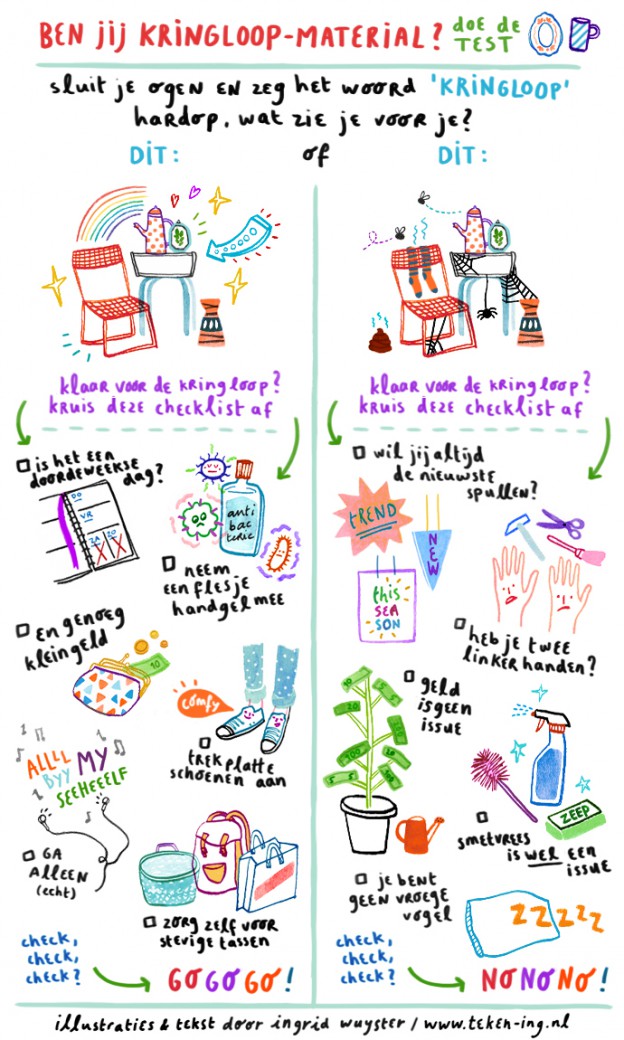 BEN JIJ KRINGLOOP-MATERIAL? DOE DE TEST
sluit je ogen en zeg het woord 'KRINGLOOP'
hardop. wat zie je voor je?
DIT: of DIT:
klaar voor de kringloop?
kruis deze checklist af
is het een
doordeweekse
dag?
DO
VR
ZA ZO
anti
bac
terie
neem
een flesje
handgel mee
en genoeg
kleingeld
10
COMFY
trek platte
schoenen aan
ALLL
BYY MY
SEEHEEELF
GA
ALLEEN
(echt)
zorg zelf voor
stevige tassen
check,
check,
check?
GO GO GO!
klaar voor de kringloop?
kruis deze checklist af
wil jij altijd
de nieuwste
spullen?
TREND
NEW
this
SEA
SON
heb je twee
linkerhanden?
geld
is geen
issue
ZEEP
smetvrees
is WEL een
issue
je bent
geen vroege
vogel
ZZZZZ
check,
check,
check?
NO NO NO!
illustraties & tekst door ingrid wuyster / www.teken-ing.nl